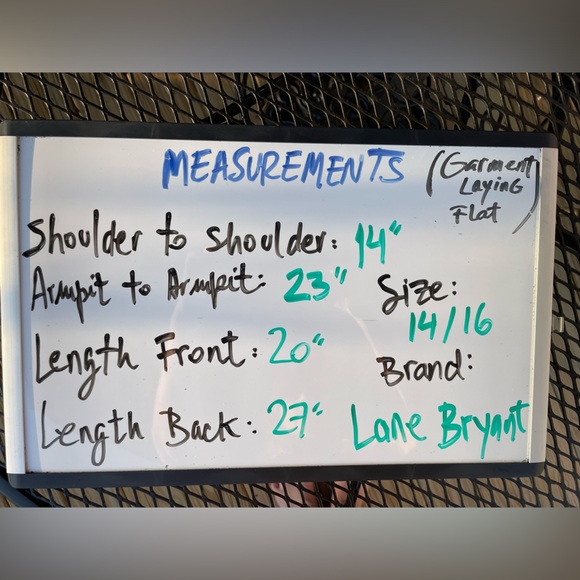 MEASUREMENTS
(Garment
Laying
Flat)
Shoulder to Shoulder: 14"
Armpit to Armpit: 23"
Size:
14/16
Length Front: 20"
Brand:
Length Back: 27"
Lane Bryant